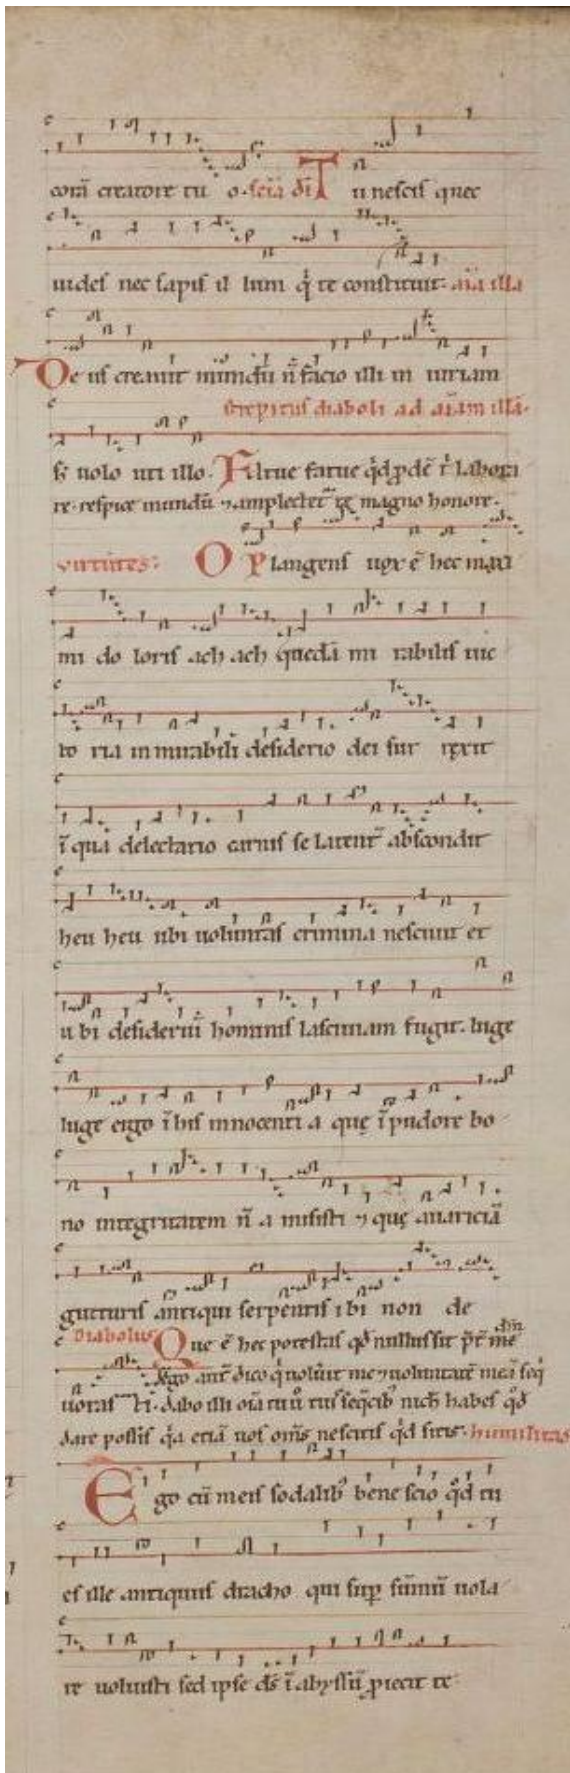 corā creatore tu o. sciā dī Tu nescis quec
uides nec sapis il lum q̇ te constituit. aīa illa
De us creauit mundū n̄ facio illi in iuriam
strepitus diaboli ad aīam illā.
sꝫ uolo uti illo. Fatue fatue q̇d ꝓdē t̄ labora
re. respice mundū ⁊ amplectet̄ te magno honore.
virtutes: O Plangens uox ē hec maxi
mi do loris ach ach quedā mi rabilis uic
to ria in mirabili desiderio dei sur rexit
ī qua delectatio carnis se latent̄ abscondit
heu heu ubi uoluntas crimina nesciuit et
u bi desideriū hominis lasciuiam fugit. luge
luge ergo ī his innocenti a quę ī pudore bo
no integritatem n̄ a misisti ⁊ quę auariciā
gutturis antiqui serpentis i bi non de
Diabolus Que ē hec potestas qd̄ nullus sit p̄t me dm̄
Ego aut̄ dico q̇ uoluit me ⁊ uoluntatē meā seq̇
uoras ti. dabo illi oīa tu u̇ tuis seq̄cib' nich habes q̇d
dare possis q̇a etiā uos om̄s nescitis q̇d sitis. humilitas
Ego cū meis sodalib' bene scio q̇d tu
es ille antiquus dracho qui sup̱ sūmū uola
re uoluisti sed ipse ds̄ ī abyssū ꝓiecit te